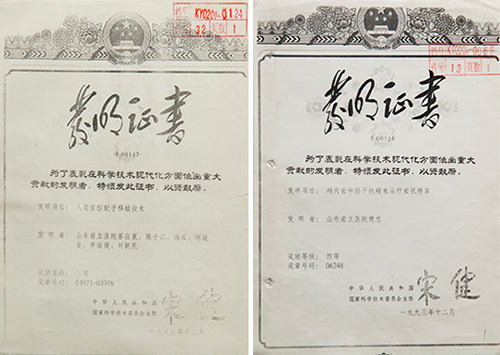 KY0201-0124
32 页数 1
发明证书
为了表彰在科学技术现代化方面做出重大
贡献的发明者,特颁发此证书,以资鼓励。
发明项目:人类宫腔配子移植技术
发明者:山东省立医院苏应宽、陈子江
李继俊、刘新民
奖励等级:三等
奖章号码:03971-03976
中华人民共和国
国家科学技术委员会主任
宋健
一九九三年十二月
13 页数 1
发明证书
为了表彰在科学技术现代化方面做出重大
贡献的发明者,特颁发此证书,以资鼓励。
发明项目:颅内面神经
发明者:山东省立医院樊忠
奖励等级:四等
奖章号码:06248
中华人民共和国
国家科学技术委员会主任
宋健
一九九三年十二月